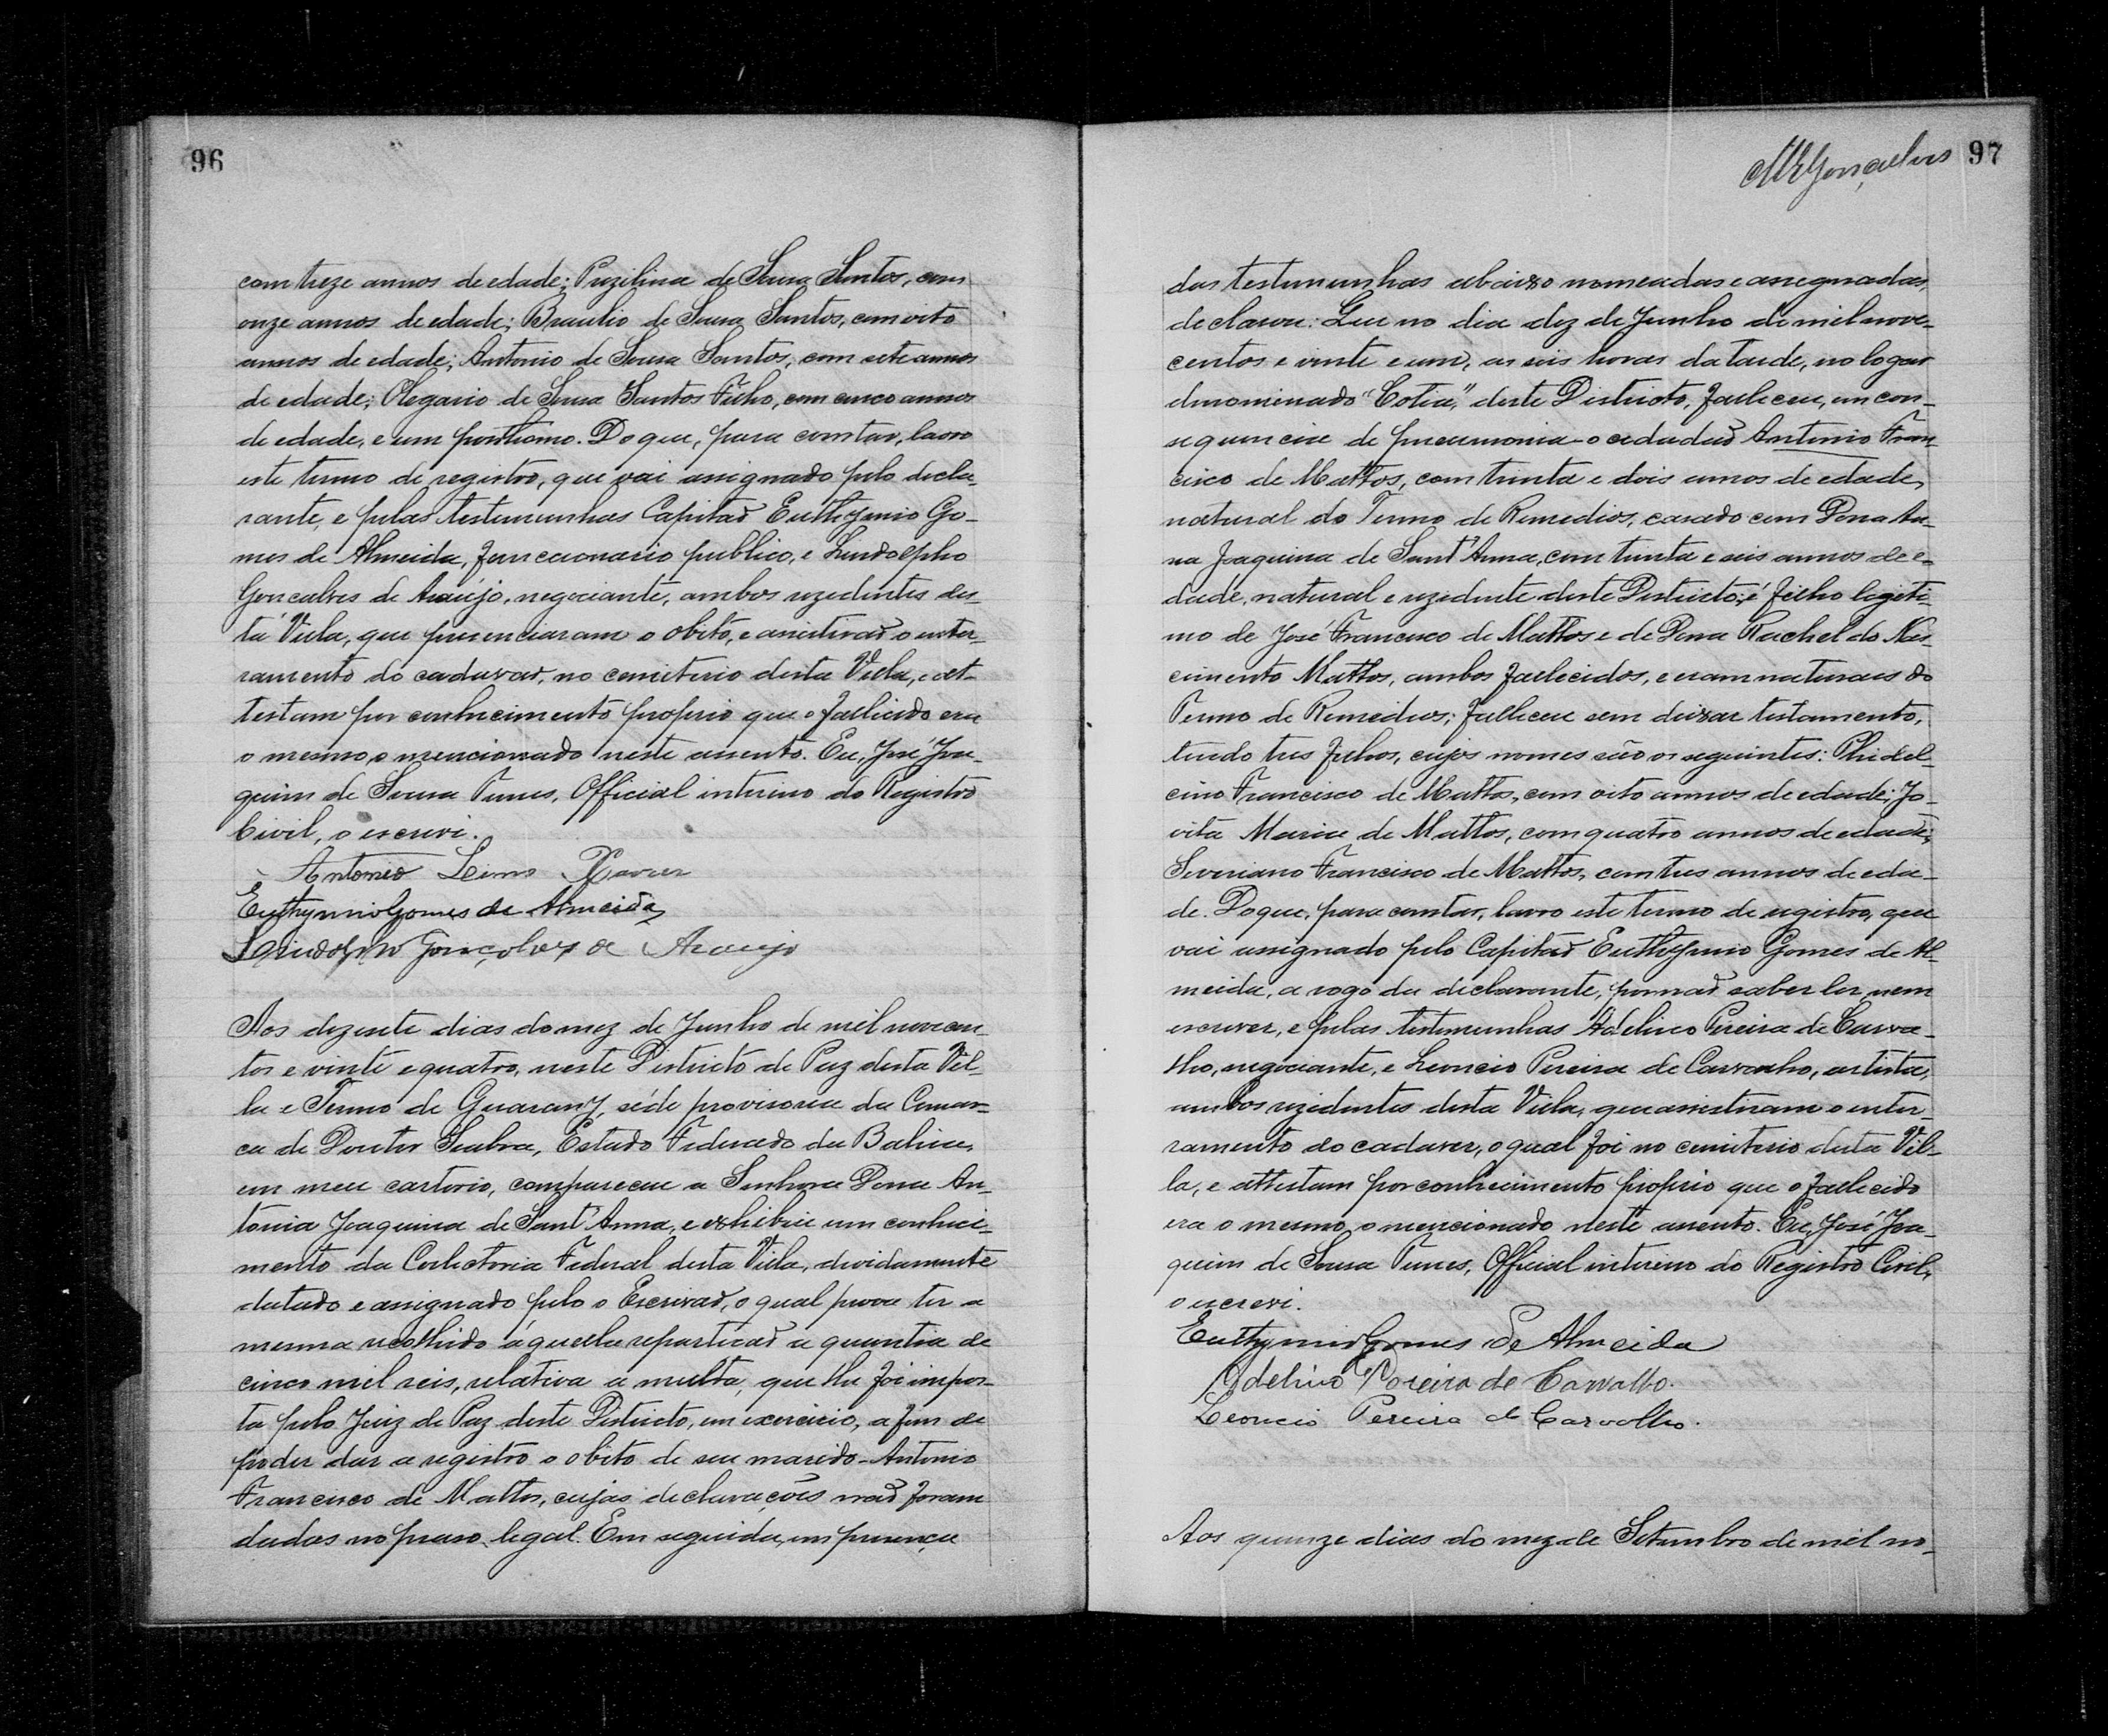 96
com treze annos de edade; Puzilina de Sousa Santos, com
onze annos de edade; Braulio de Sousa Santos, com oito
annos de edade; Antonio de Sousa Santos, com sete annos
de edade; Olegario de Sousa Santos Filho, com cinco annos
de edade, e um posthumo. Do que, para constar, lavro
este termo de registro, que vai assignado pelo decla-
rante, e pelas testemunhas Capitão Euthymio Go-
mes de Almeida, funccionario publico, e Lindolpho
Gonçalves de Araújo, negociante, ambos rezidentes des-
ta Villa, que presenciaram o obito, e assistirão o enter-
ramento do cadaver, no cemiterio desta Villa, e at-
testam por conhecimento proprio que o fallecido era
o mesmo, o mencionado neste assento. Eu, José Joa-
quim de Sousa Tunes, Official interino do Registro
Civil, o escrevi.
Antonio Xavier
Euthymio Gomes de Almeida
Lindolpho Gonçalves de Araujo
Aos dezesete dias do mez de Junho de mil novecen-
tos e vinte e quatro, neste Districto de Paz desta Vil-
la e Termo de Guarany, séde provisoria da Comar-
ca de Doutor Seabra, Estado Federado da Bahia,
em meu cartorio, compareceu a Senhora Dona An-
tonia Joaquina de Sant'Anna, e exhibiu um conheci-
mento da Collectoria Federal desta Villa, devidamente
datado e assignado pelo o Escrivão, o qual prova ter a
mesma recolhido áquella repartição a quantia de
cinco mil reis, relativa a multa, que lhe foi impos-
ta pelo Juiz de Paz deste Districto, em exercicio, a fim de
poder dar a registro o obito de seu marido - Antonio
Francisco de Mattos, cujas declarações não foram
dadas no praso legal. Em seguida, em presença
97
das testemunhas abaixo nomeadas e assegnadas,
declarou: Que no dia dez de Junho de mil nove-
centos e vinte e um, as seis horas da tarde, no logar
denominado "Cotia," deste Districto, falleceu, em con-
sequencia de pneumonia - o cidadão Antonio Fran-
cisco de Mattos, com trinta e dois annos de edade,
natural do Termo de Remedios, casado com Dona An-
na Joaquina de Sant'Anna, com trinta e seis annos de e-
dade, natural e rezidente deste Districto; é filho legiti-
mo de José Francisco de Mattos e de Dona Rachel do Nas-
cimento Mattos, ambos fallecidos, e eram naturaes do
Termo de Remedios; falleceu sem deixar testamento,
tendo tres filhos, cujos nomes são os seguintes: Phidel-
cino Francisco de Mattos, com oito annos de edade; Jo-
vita Maria de Mattos, com quatro annos de edade;
Severiano Francisco de Mattos, com tres annos de eda-
de. Do que, para constar, lavro este termo de registro, que
vai assignado pelo Capitão Euthymio Gomes de Al-
meida, a rogo da declarante, por não saber ler, nem
escrever, e pelas testemunhas Adelino Pereira de Carva-
lho, negociante, e Leoncio Pereira de Carvalho, artista,
ambos rezidentes desta Villa, que assistiram o enter-
ramento do cadaver, o qual foi no cemiterio desta Vil-
la, e attestam por conhecimento proprio que o fallecido
era o mesmo, o mencionado neste assento. Eu, José Joa-
quim de Sousa Tunes, Official interino do Registro Civil,
o escrevi.
Euthymio Gomes de Almeida
Adelino Pereira de Carvalho.
Leoncio Pereira de Carvalho.
Aos quinze dias do mez de Setembro de mil no-